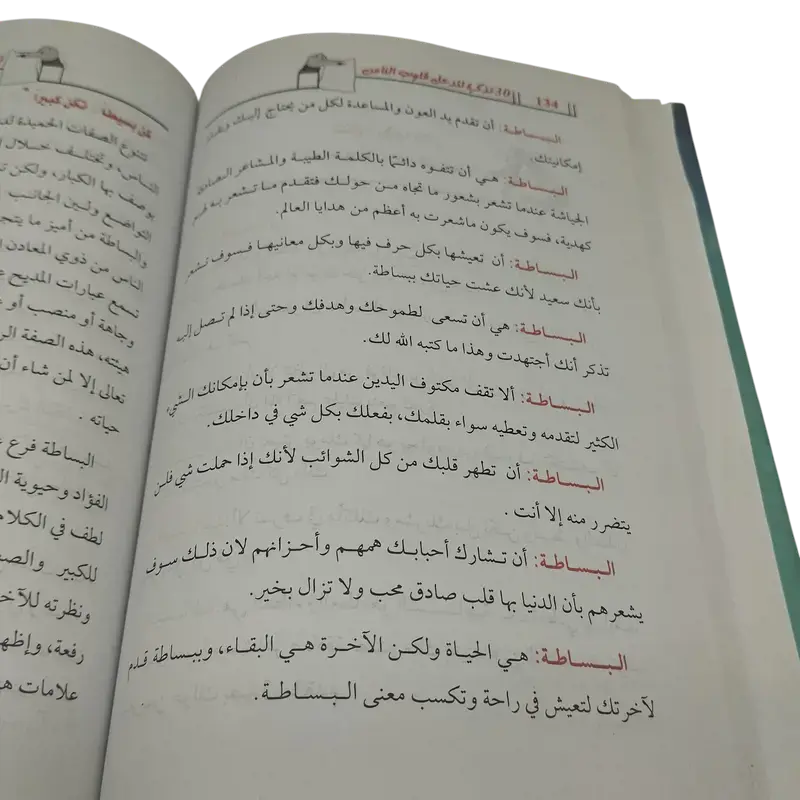 134 || 30 تذكرة للدخول لقلوب الناس
البساطة: أن تقدم يد العون والمساعدة لكل من يحتاج إليك وبقدر
إمكانيتك.
البساطة: هي أن تتفوه دائمًا بالكلمة الطيبة والمشاعر الصادقة
الجياشة عندما تشعر بشعور ما تجاه من حولك فتقدم ما تشعر به لهم
كهدية، فسوف يكون ماشعرت به أعظم من هدايا العالم.
البساطة: أن تعيشها بكل حرف فيها وبكل معانيها فسوف تشعر
بأنك سعيد لأنك عشت حياتك ببساطة.
البساطة: هي أن تسعى لطموحك وهدفك وحتى إذا لم تصل إليه
تذكر أنك أجتهدت وهذا ما كتبه الله لك.
البساطة: ألا تقف مكتوف اليدين عندما تشعر بأن بإمكانك الشيء
الكثير لتقدمه وتعطيه سواء بقلمك، بفعلك بكل شي في داخلك.
البساطة: أن تطهر قلبك من كل الشوائب لأنك إذا حملت شي فلن
يتضرر منه إلا أنت .
البساطة: أن تشارك أحبابك همهم وأحزانهم لان ذلك سوف
يشعرهم بأن الدنيا بها قلب صادق محب ولا تزال بخير.
البساطة: هي الحياة ولكن الآخرة هي البقاء، وببساطة قدم
لآخرتك لتعيش في راحة وتكسب معنى البساطة.
كن بسيطاً تكن كبيراً
تتنوع الصفات الحميدة
الناس، وتختلف خلال
يوصف بها الكبار، ولكن
التواضع ولين الجانب
والبساطة من أميز ما
الناس من ذوي المعادن
تسمع عبارات المديح
وجاهة أو منصب أو
هيئته، هذه الصفة
تعالى إلا لمن شاء أن
حياته .
البساطة فرع
الفؤاد وحيوية
لطف في الكلام
للكبير والصغير
ونظرته للآخر
رفعة، وإظهار
علامات